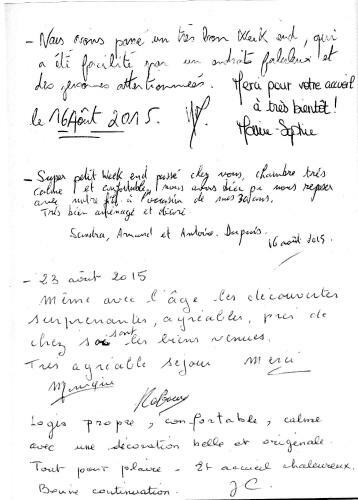 - Nous avons passé un très bon week end, qui
a été facilité par un endroit fabuleux et
des personnes attentionnées. Merci pour votre accueil
à très bientôt!
le 16 Août 2015. Marie-Sophie
- Super petit week end passé chez vous, chambre très
calme et confortable, nous avons bien pu nous reposer
avec notre fils à l'occasion de mes 30 ans.
Très bien aménagé et décoré
Sandra, Arnaud et Antoine. Dupuis.
16 août 2015.
- 23 août 2015
Même avec l'âge les découvertes
surprenantes, agréables, près de
chez soi sont les biens venues.
Très agréable séjour Merci
Monique
Logis propre, confortable, calme
avec une décoration belle et originale.
Tout pour plaire. Et accueil chaleureux.
Bonne continuation. J C.